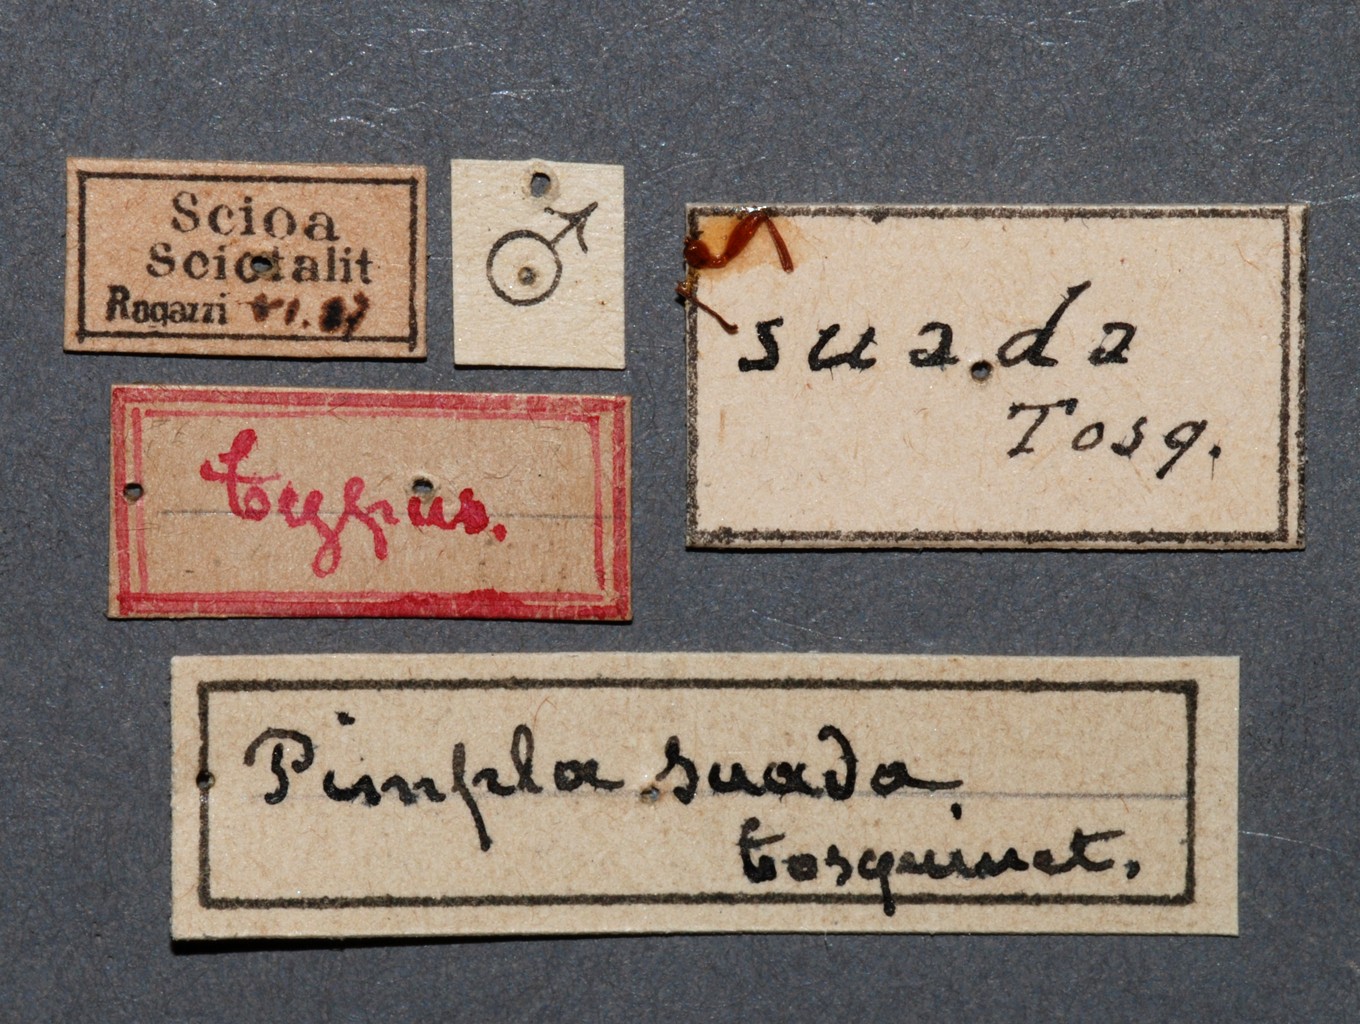 Scioa
Sciotalit
Ragazzi VI.87
♂
typus.
suada
Tosq.
Pimpla suada
tosquinet.